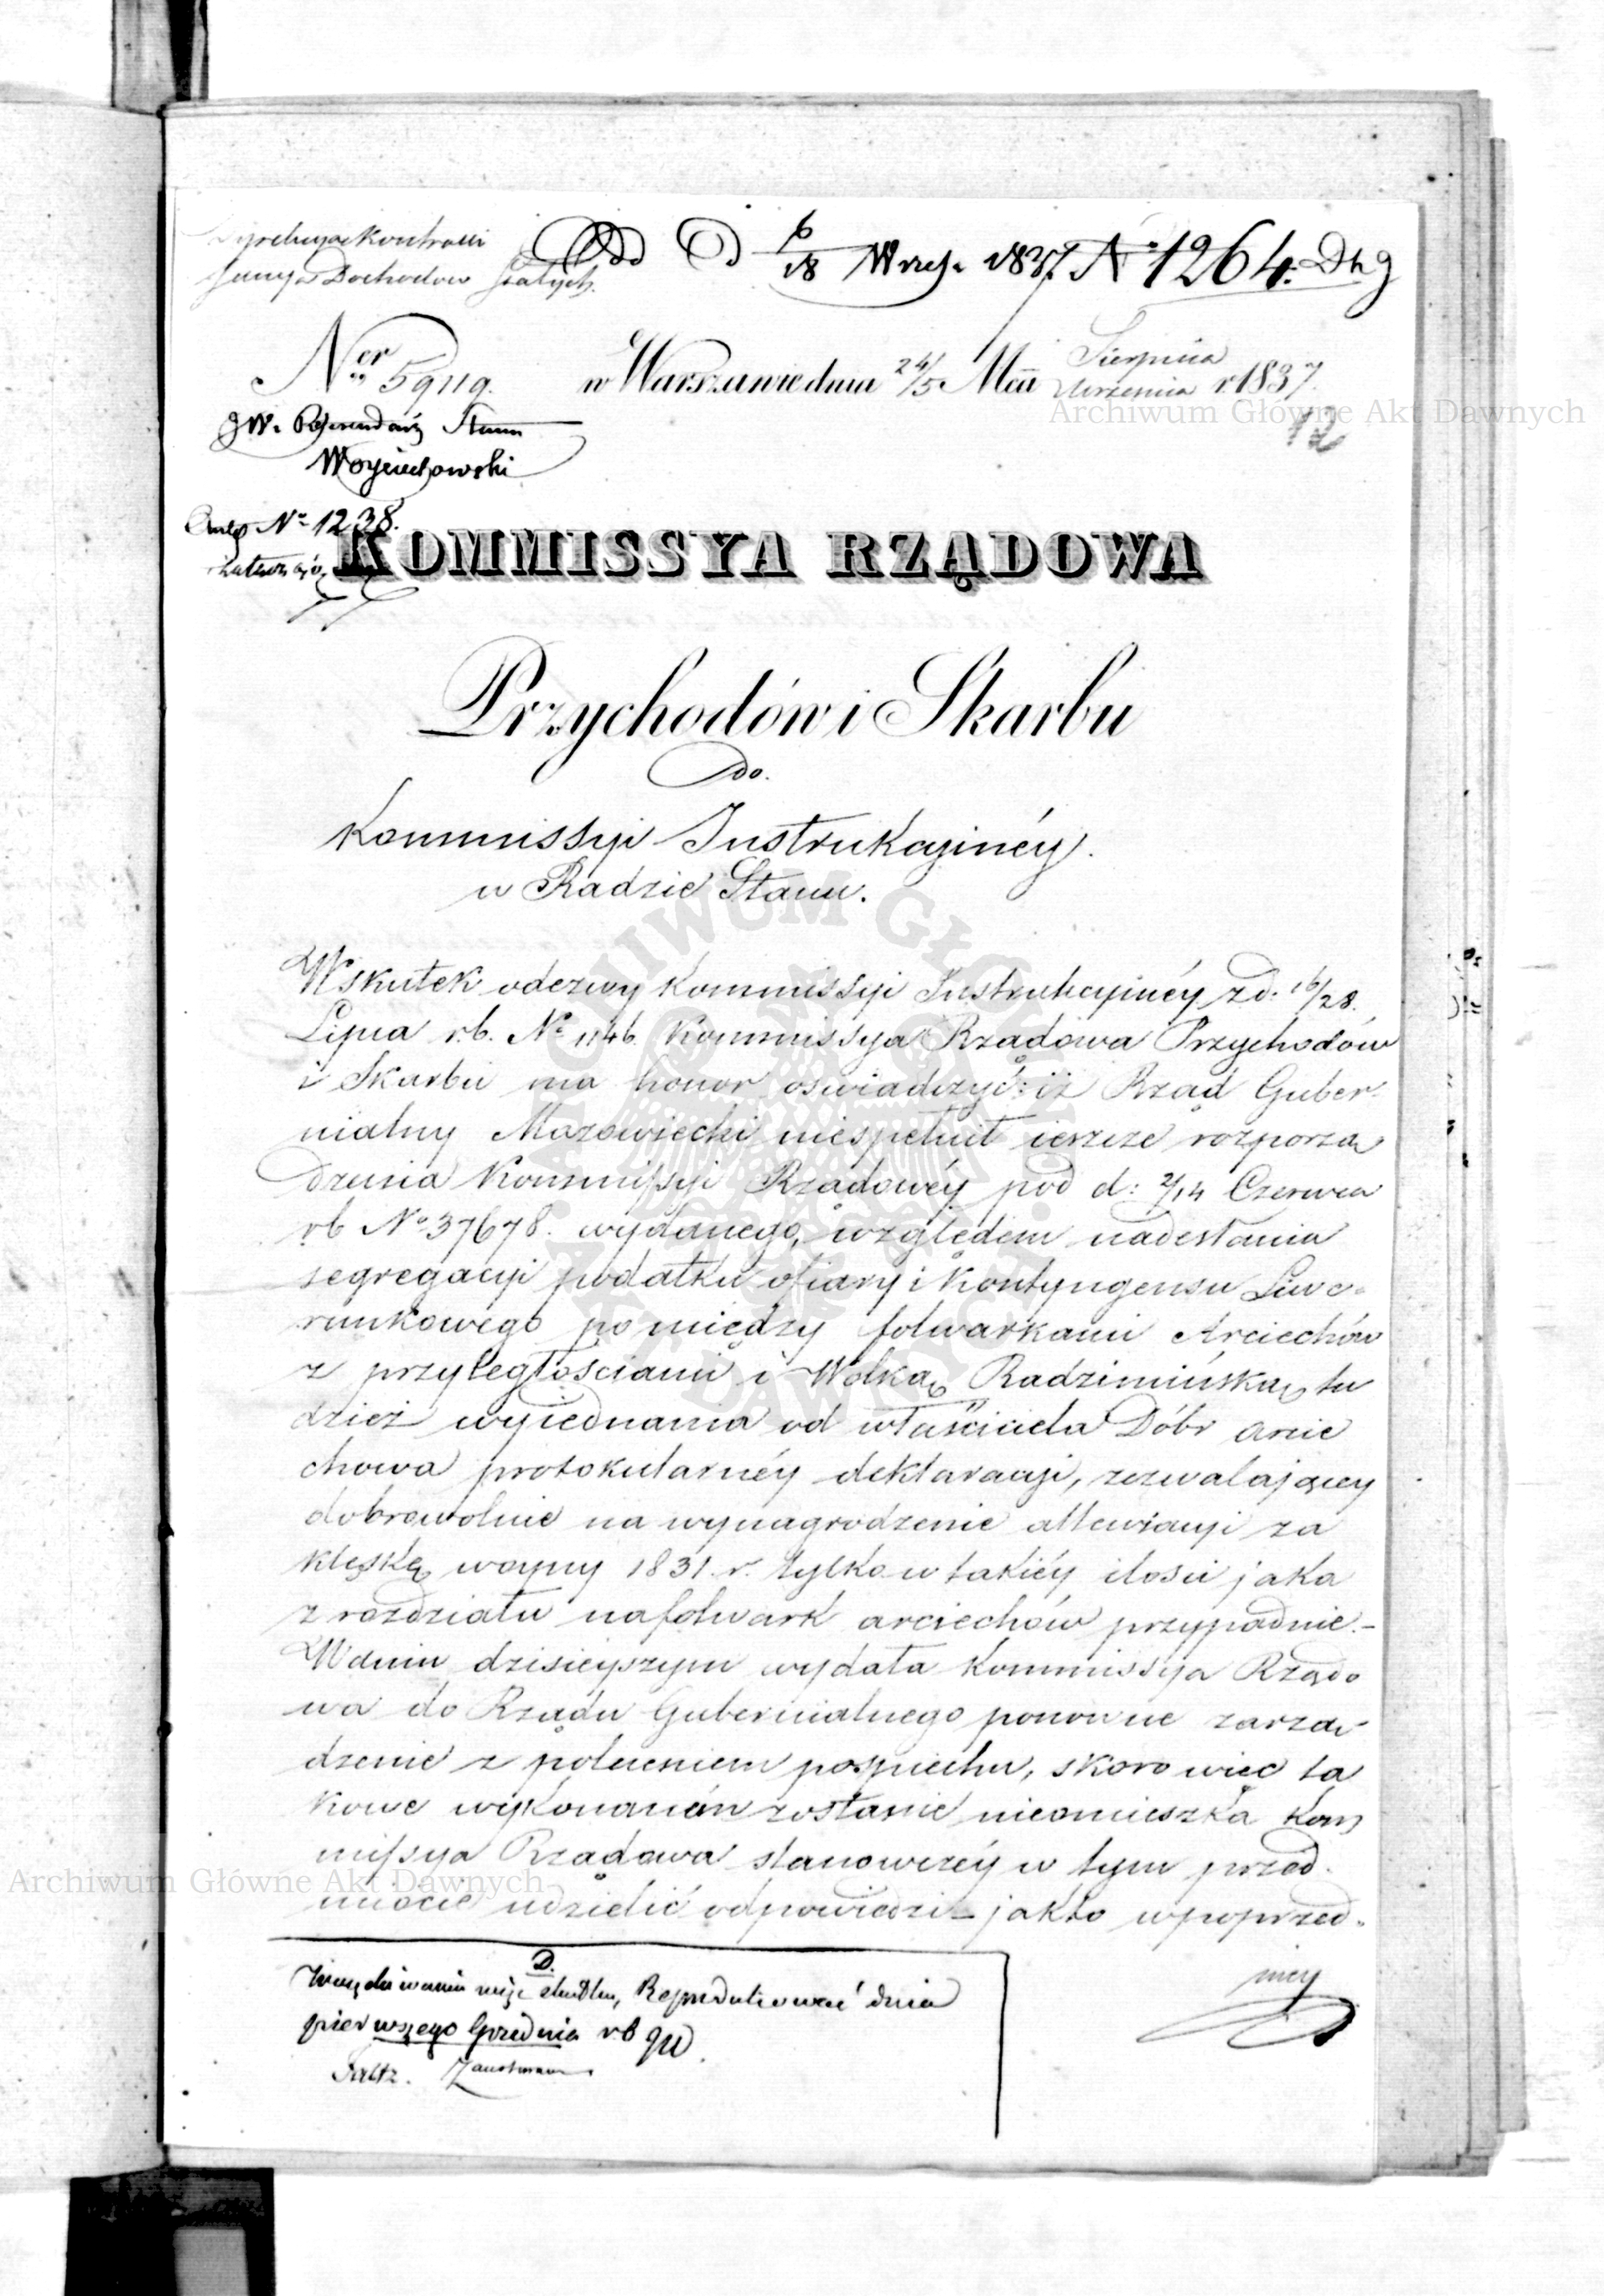 Od D 6/18 Wrześ. 1837 N° 1264. Dtg
Dochodów Stałych.
Ner 59119. w Warszawie dnia 24/5 Mca Sierpnia Września r. 1837.
12
JW. Referendarz Stanu
Wojciechowski
Archiwum Główne Akt Dawnych
N° 1238.
KOMMISSYA RZĄDOWA
Przychodów i Skarbu
do.
Kommissyi Instrukcyinéy.
w Radzie Stanu.
Wskutek odezwy Kommissyi Instrukcyinéy z d: 16/28.
Lipca r.b. N° 1146. Kommissya Rządowa Przychodów
i Skarbu ma honor oświadczyć: iż Rząd Guber-
nialny Mazowiecki niespełnił ieszcze rozporzą
dzenia Kommissyi Rządowéy pod d: 2/14 Czerwca
rb N° 37678. wydanego, względem nadesłania
segregacyi podatku ofiary i Kontyngensu Liwe-
runkowego pomiędzy folwarkami Arciechów
z przyległościami i Wólką Radzimińską, tu
dzież wyiednania od właściciela Dóbr Arcie
chowa protokularnéy deklaracyi, zezwalającey
dobrowolnie na wynagrodzenie allewiacyi za
klęskę woyny 1831. r. tylko w takiéy ilości jaka
z rozdziału na folwark Arciechów przypadnie.-
W dniu dzisieyszym wydała Kommissya Rządo
wa do Rządu Gubernialnego ponowne zarzą-
dzenie z poleceniem pospiechu, skoro więc ta
kowe wykonaném zostanie nieomieszka Kom
missya Rządowa stanowczéy w tym przed-
miocie udzielić odpowiedzi - jak to w poprzed-
niey
Archiwum Główne Akt Dawnych
D.
Reprodukować dnia
pierwszego Grudnia rb